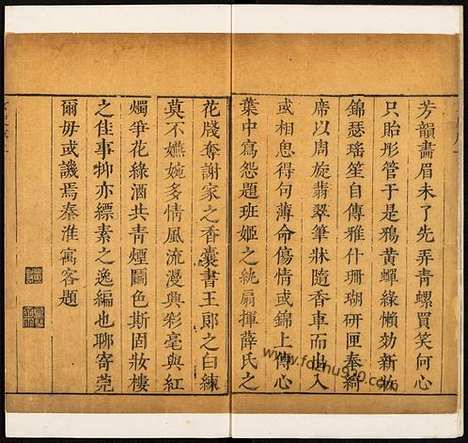 芳韻畵眉未了先弄青螺買笑何心
只貽彤管于是鴉黃蟬綠懶効新妝
錦瑟瑤笙自傳雅什珊瑚研匣奉綺
席以周旋翡翠筆牀隨香車而出入
或相思得句薄命傷情或錦上傳心
葉中寫怨題班姬之紈扇揮薛氏之
花牋奪謝家之香囊書王郎之白練
莫不嫵婉多情風流漫興彩毫與紅
燭爭花綠酒共青煙鬬色斯固妝樓
之佳事抑亦縹素之逸編也聊寄莞
爾毋或譏焉秦淮寓客題
www.fozhu920.com